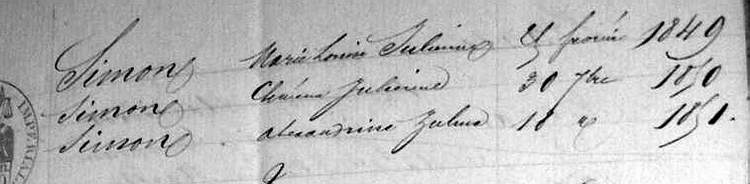 Simon Marie Louise Julienne février 1849
Simon Julienne 30 7bre 1850
Simon Alexandrine Zulma 18 " 1851.
IMPERIAL